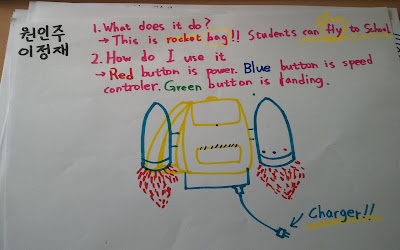 원인주
이정재
1. What does it do?
→ This is rocket bag!! Students can fly to School
2. How do I use it
→ Red button is power. Blue button is speed
controler. Green button is landing.
Charger!!